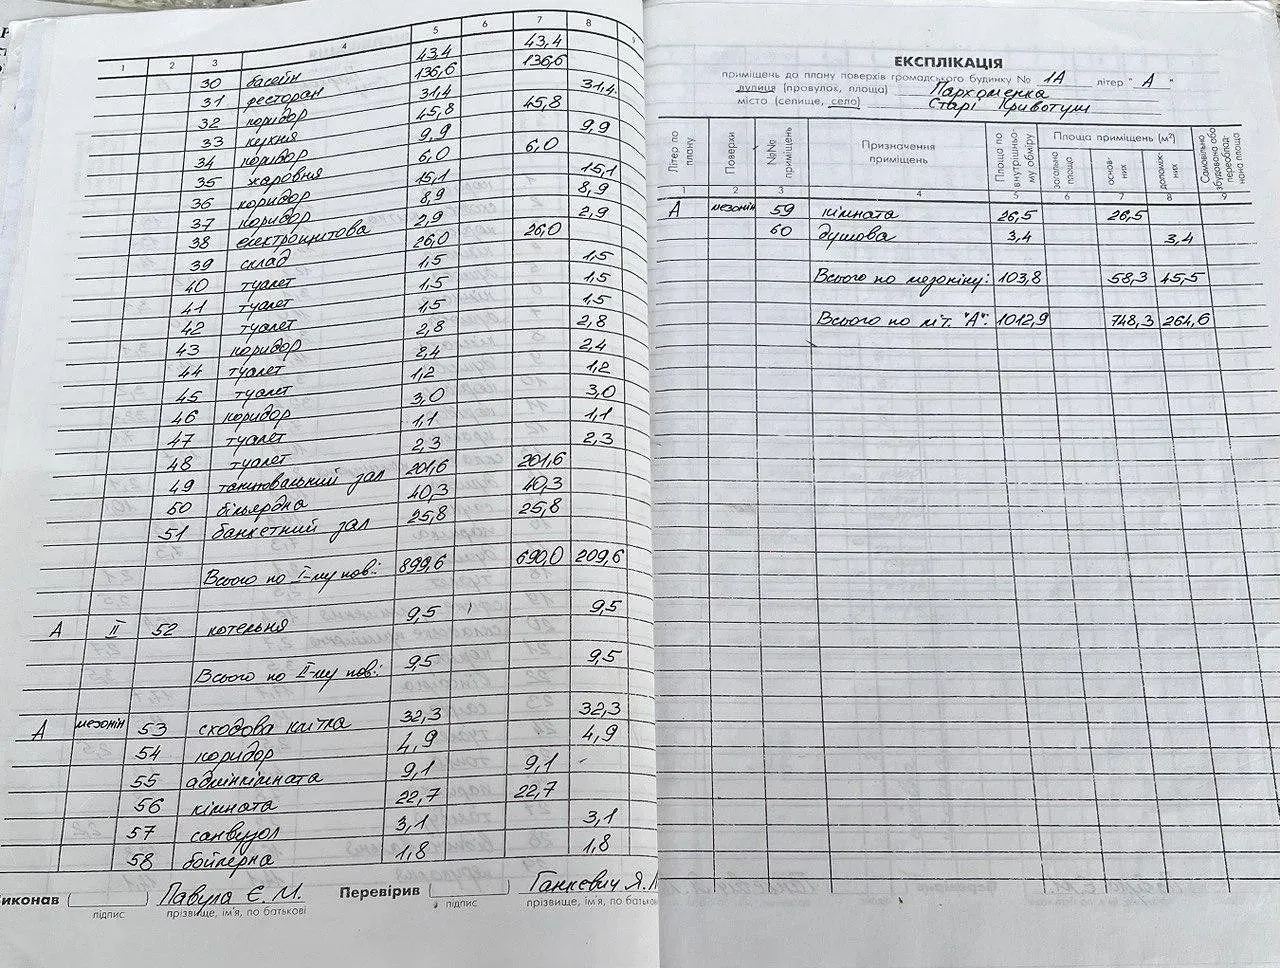 1 2 3 4 5 6 7 8 9
30 басейн 43,4 43,4
31 ресторан 136,6 136,6
32 коридор 31,4 31,4
33 кухня 45,8 45,8
34 коридор 9,9 9,9
35 жаровня 6,0 6,0
36 коридор 15,1 15,1
37 коридор 8,9 8,9
38 електрощитова 2,9 2,9
39 склад 26,0 26,0
40 туалет 1,5 1,5
41 туалет 1,5 1,5
42 туалет 1,5 1,5
43 коридор 2,8 2,8
44 туалет 2,4 2,4
45 туалет 1,2 1,2
46 коридор 3,0 3,0
47 туалет 1,1 1,1
48 туалет 2,3 2,3
49 танцювальний зал 201,6 201,6
50 більярдна 40,3 40,3
51 банкетний зал 25,8 25,8
Всього по I-му пов.: 899,6 690,0 209,6
А II 52 котельня 9,5 9,5
Всього по II-му пов.: 9,5 9,5
А мезонін 53 сходова клітка 32,3 32,3
54 коридор 4,9 4,9
55 адмінкімната 9,1 9,1
56 кімната 22,7 22,7
57 санвузол 3,1 3,1
58 бойлерна 1,8 1,8
иконав Павула Є. М. Перевірив Ганкевич Я.
підпис прізвище, ім'я, по батькові підпис прізвище, ім'я, по батькові
ЕКСПЛІКАЦІЯ
приміщень до плану поверхів громадського будинку № 1А літер "А"
вулиця (провулок, площа) Пархоменка
місто (селище, село) Старі Кривотули
Літер по плану
Поверхи
№№ приміщень
Призначення приміщень
Площа по внутрішньому обміру
Площа приміщень (м²)
загальна площа
основних
допоміжних
Самовільно збудована або переобладнана площа
1 2 3 4 5 6 7 8 9
А мезонін 59 кімната 26,5 26,5
60 душова 3,4 3,4
Всього по мезоніну: 103,8 58,3 45,5
Всього по літ. "А": 1012,9 748,3 264,6